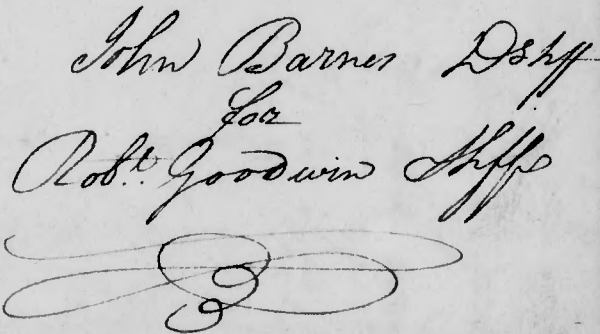 John Barnes Dshff
for
Robt. Goodwin Shff